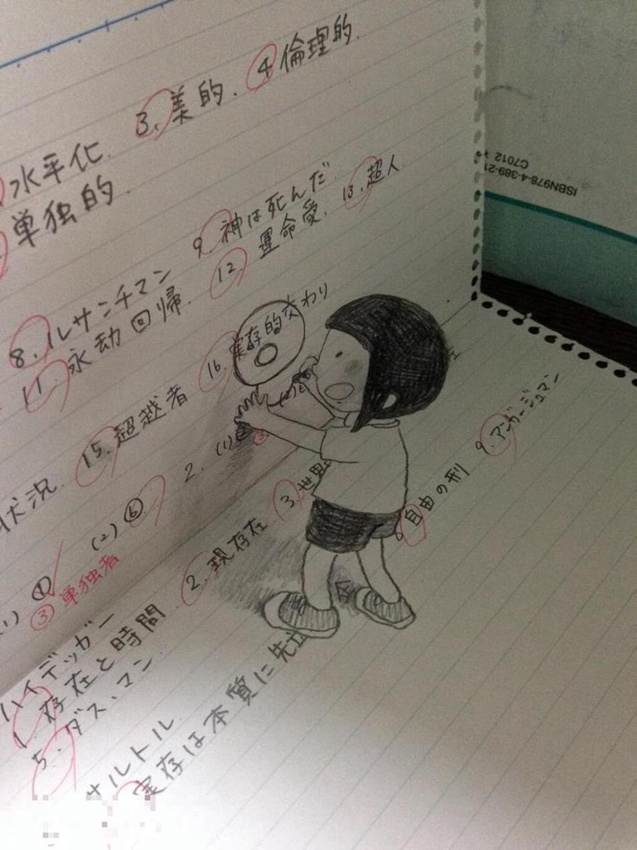 水平化. 3. 美的. ④倫理的.
単独的.
8. ルサンチマン 9. 神は死んだ
11. 永劫回帰. 12 運命愛. 13. 超人
状況. 15. 超越者 16. 実存的交わり
(1) ① (2) ⑥ 2. (1)
③ 単独者 ③
ハイデッガー
1. 存在と時間 2. 現存在 3. 世界
5. ダス・マン
サルトル
実存は本質に先立 8 自由の刑 9. アンガージュマン
ISBN978-4-389-21
C7012